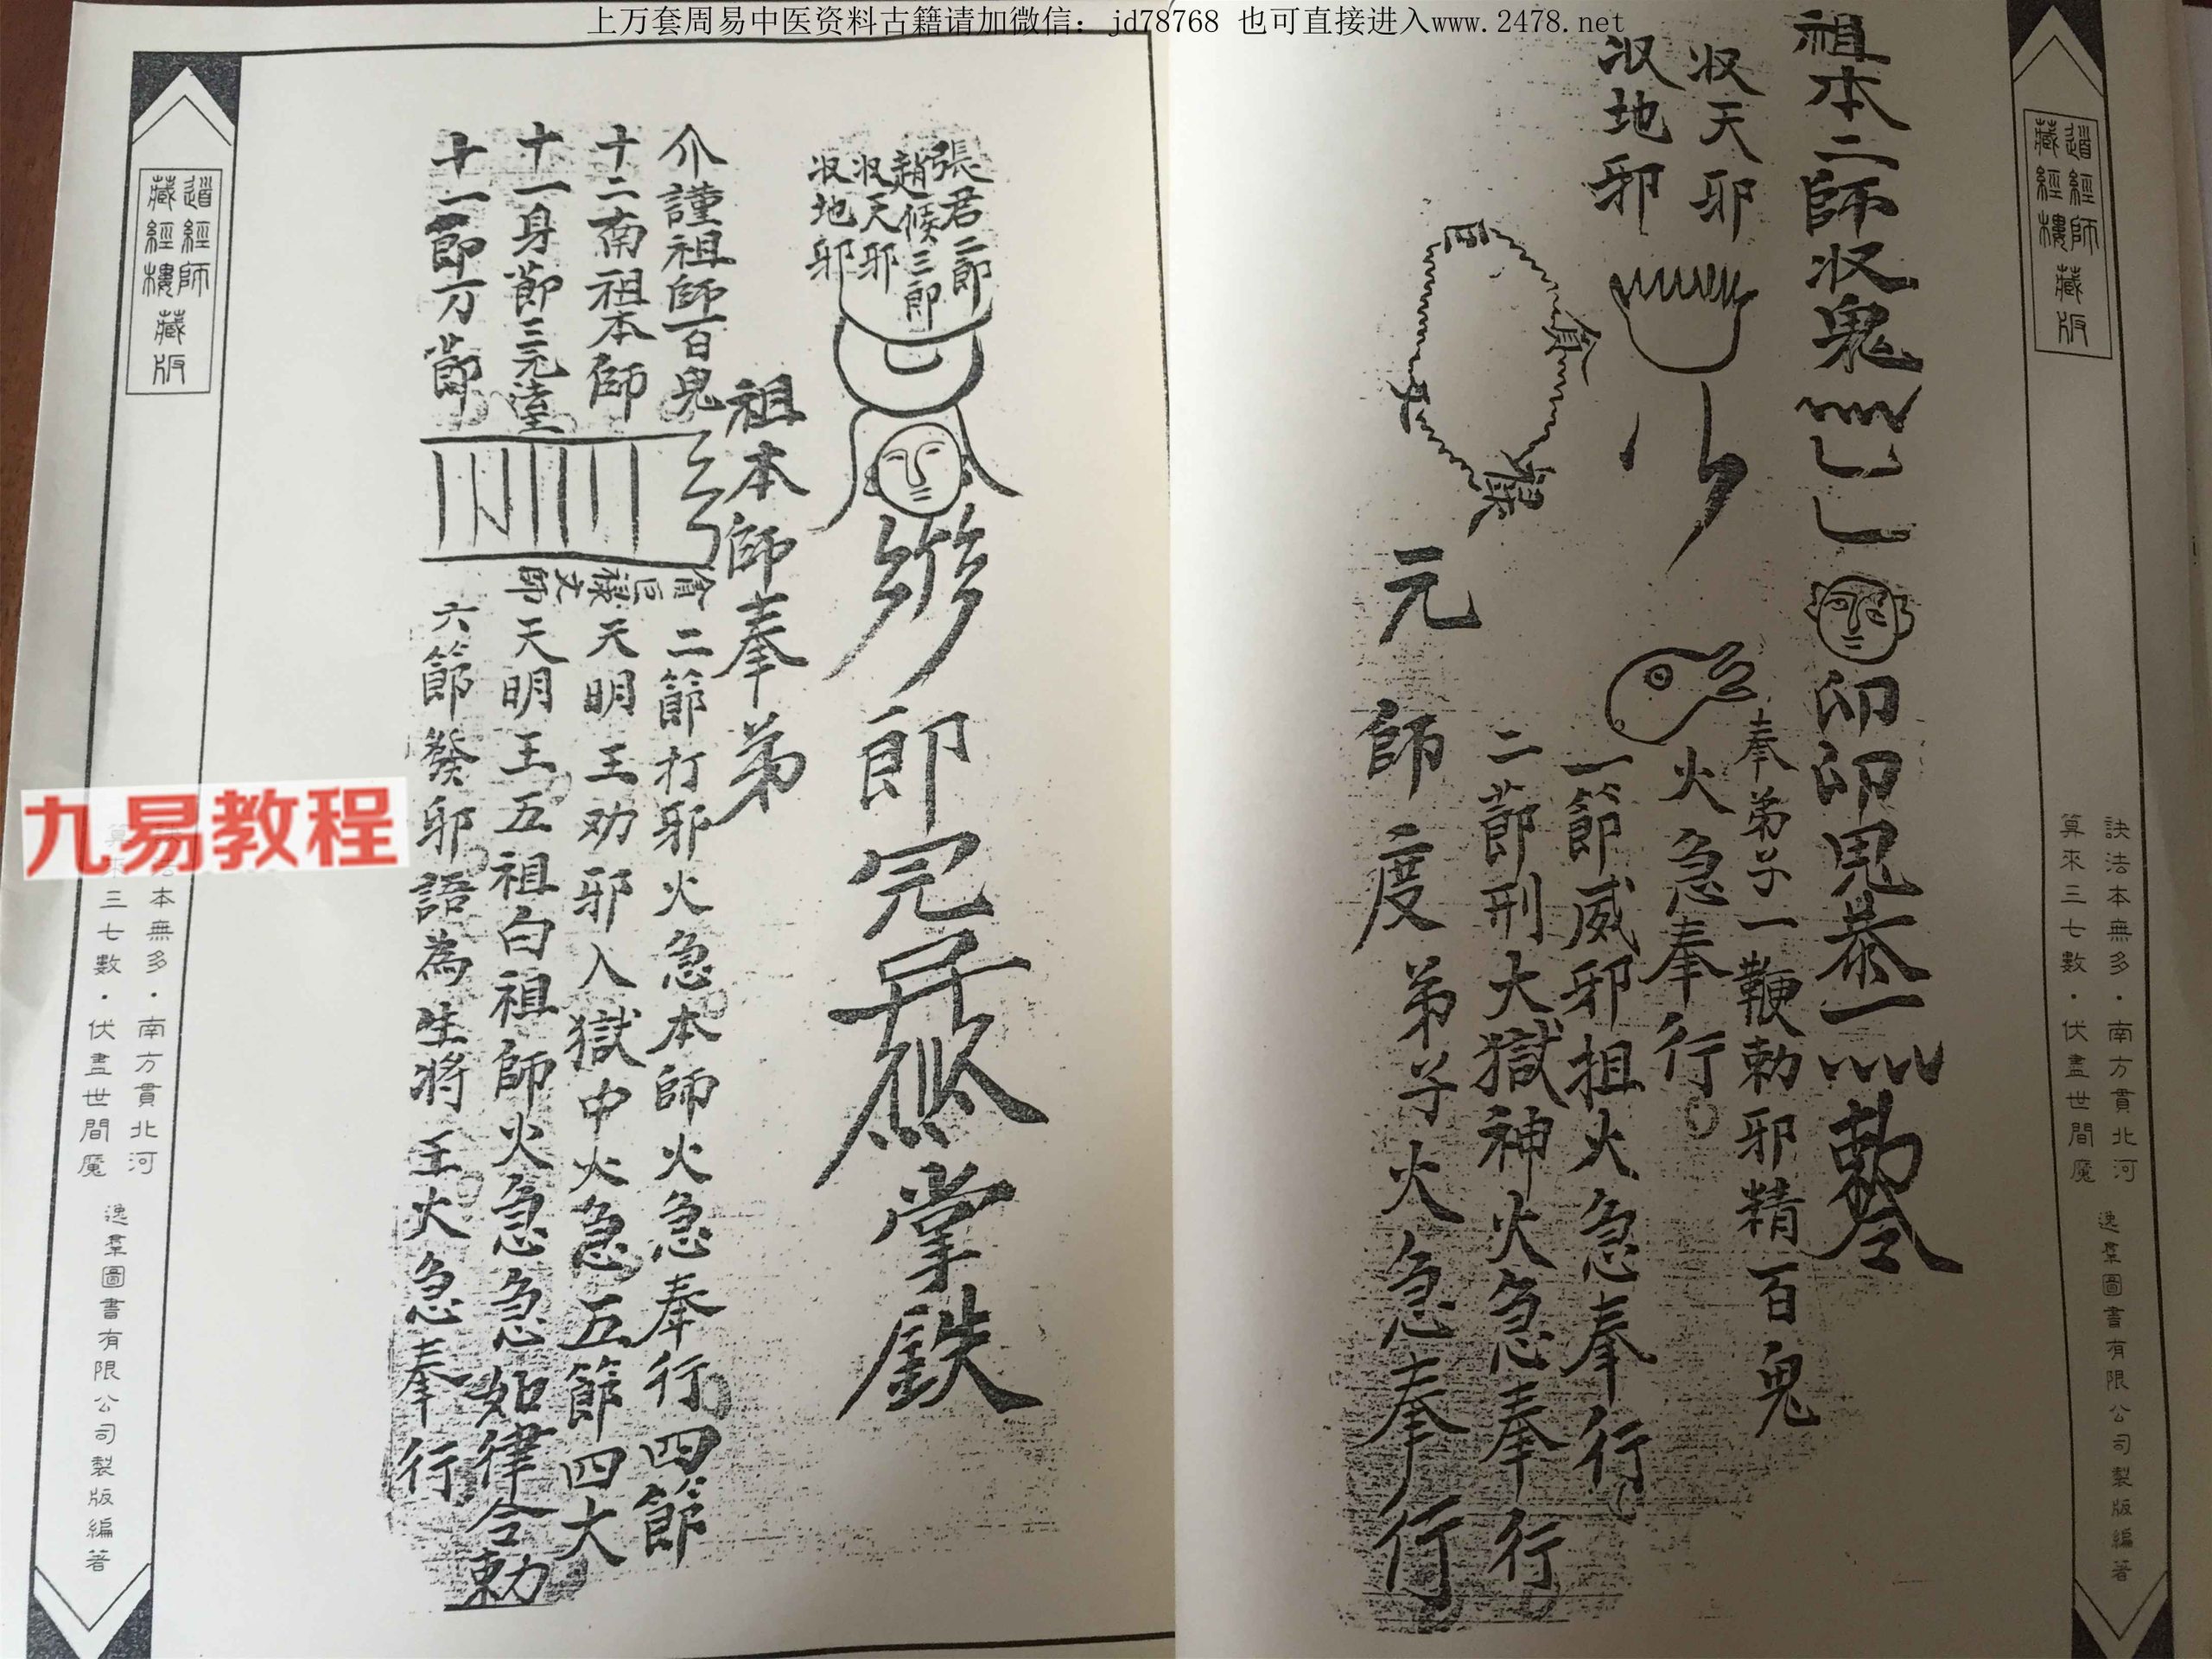 上万套周易中医资料古籍请加微信：jd78768 也可直接进入www.2478.net
道經師
藏經樓
藏版
訣法本無多·南方貫北河
算來三七數·伏盡世間魔
逸羣圖書有限公司製版編著
祖本二師收鬼
印印鬼
一
勅令
收天邪
收地邪
奉弟子一鞭勅邪精百鬼
火急奉行
一節威邪祖火急奉行
二節刑大獄神火急奉行
元師度弟子火急奉行
張君二節
趙候三節
收天邪
收地邪
節
掌鉄
祖本師奉弟
謹祖師百鬼
十二南祖本師
十一身節三元達
十一節万節
二節打邪火急本師火急奉行四節
天明王劝邪入獄中火急五節四大
天明王五祖白祖師火急急如律令勅
六節發邪語為生將王火急奉行
道經師
藏經樓
藏版
本無多·南方貫北河
三七數·伏盡世間魔
逸羣圖書有限公司製版編著
九易教程